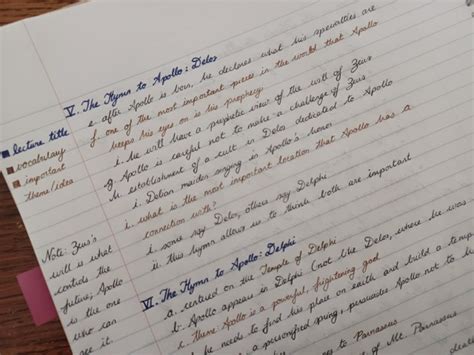 V. The Hymn to Apollo: Delos
e. after Apollo is born, he declares what his specialties are
f. one of the most important pieces in the world that Apollo
keeps his eyes on is his prophecy
i. he will have a prophetic view of the will of Zeus
g. Apollo is careful not to make a challenge of Zeus
h. establishment of a cult in Delos dedicated to Apollo
i. Delian maidens singing in Apollo's honor
i. what is the most important location that Apollo has a
connection with?
i. some say Delos, others say Delphi
ii. this hymn allows us to think both are important
VI. The Hymn to Apollo: Delphi
a. centered on the Temple of Delphi
b. Apollo appears in Delphi (not like Delos, where he was
i. Theme: Apollo is a powerful, frightening god
needs to find his place on earth and build a temp
a personified spring, persuades Apollo not to
to Parnassus
of Mt. Parnassus
lecture title
vocabulary
important
theme/idea
Note: Zeus's
will is what
controls the
future; Apollo
is the one
who can
see it